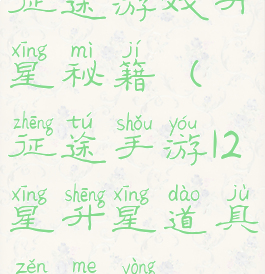 征途游戏升
xīng mì jí
星秘籍（
zhēng tú shǒu yóu
征途手游12
xīng shēng xīng dào jù
星升星道具
zěn me yòng